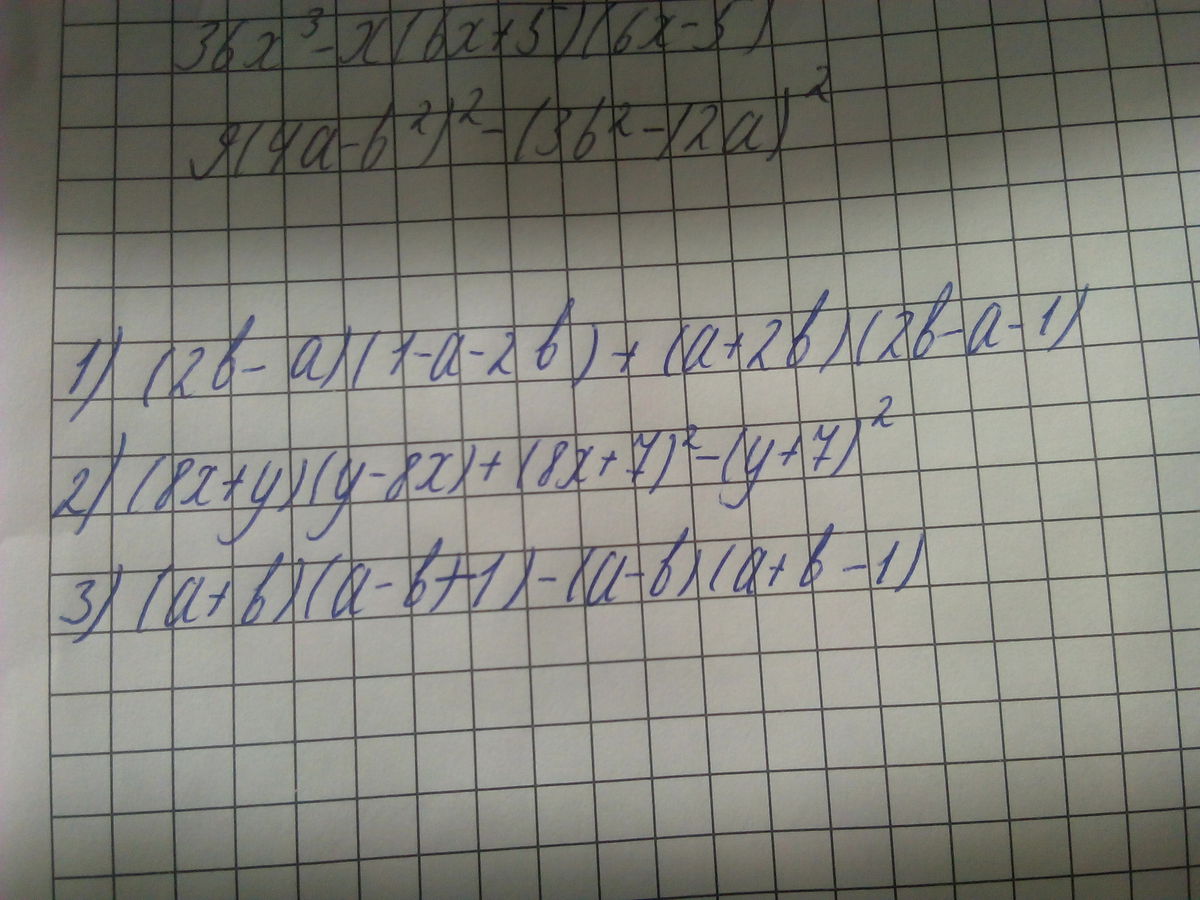 36x³-x(6x+5)(6x-5)
9(4a-b²)²-(3b²-12a)²
1) (2b-a)(1-a-2b)+(a+2b)(2b-a-1)
2) (8x+y)(y-8x)+(8x+7)²-(y+7)²
3) (a+b)(a-b+1)-(a-b)(a+b-1)